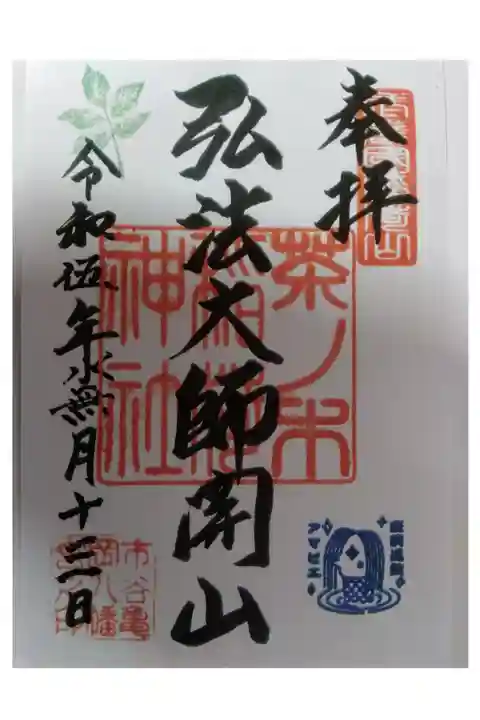 奉拝
弘法大師開山
茶ノ木
稲荷
神社
令和伍年水無月十三日
市谷亀
岡八幡
アマビエ